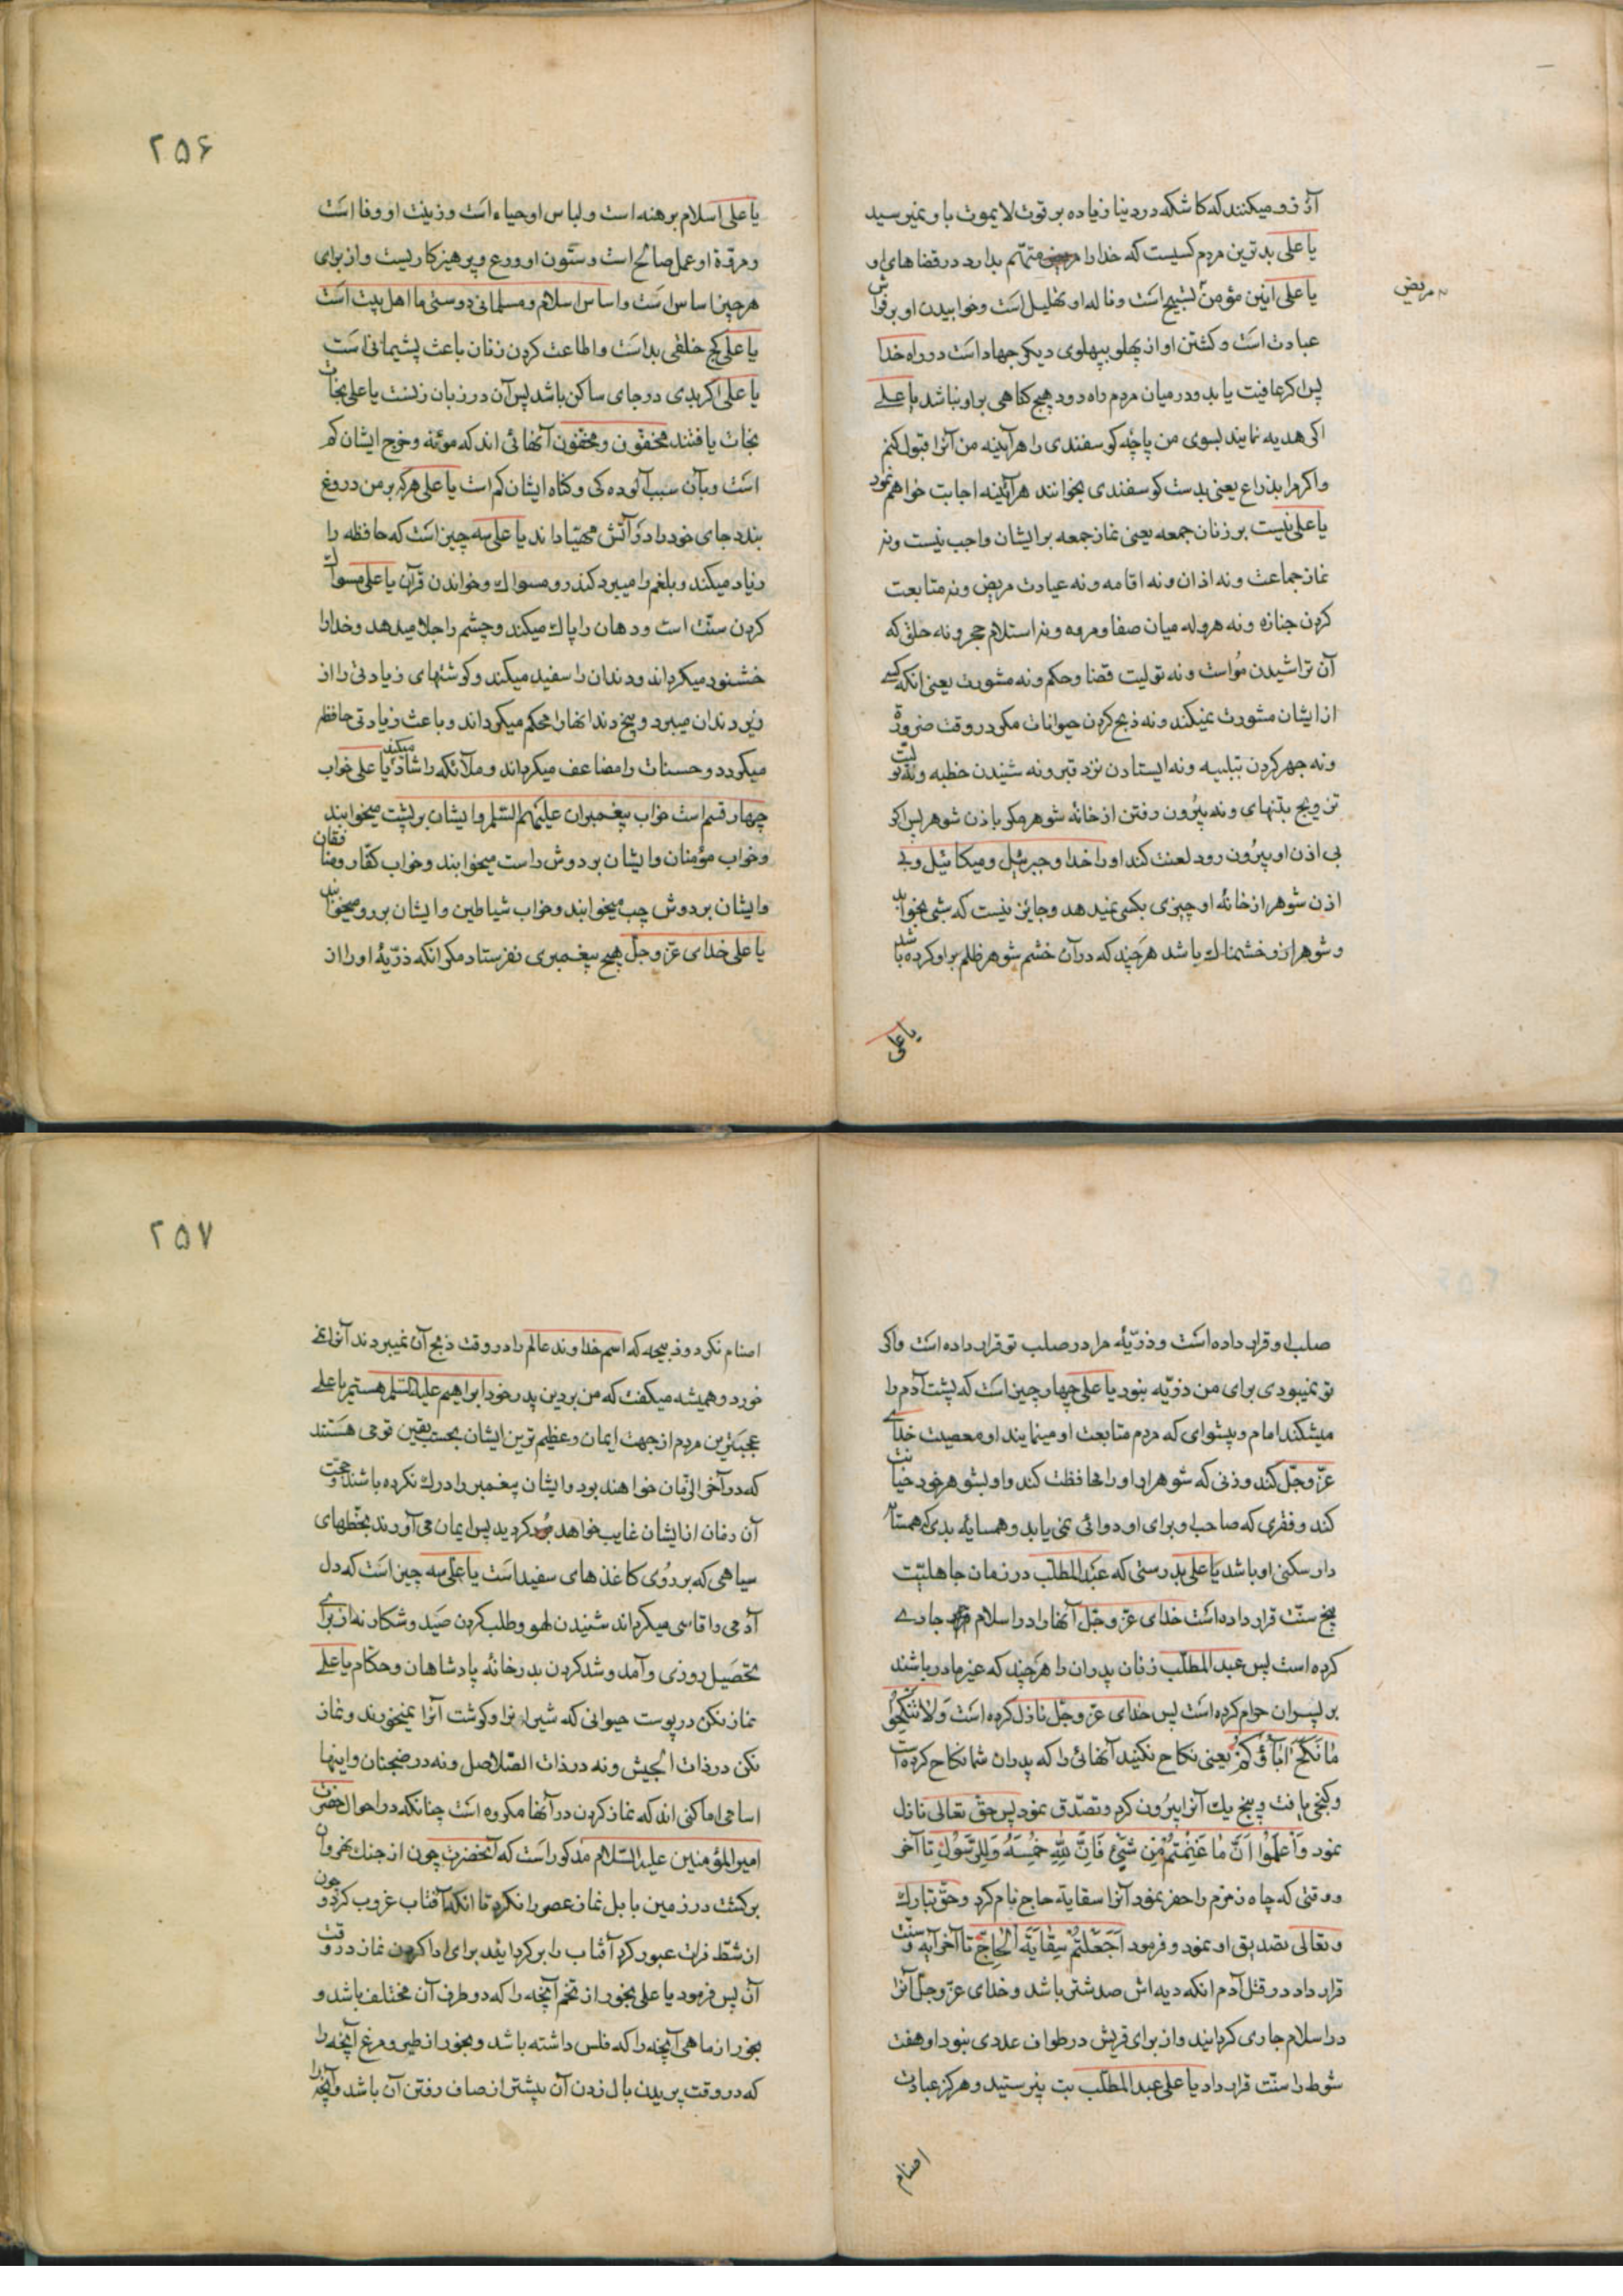 آرزو میکنند که کاشکه در دنیا زیاده بر قوت لا یموت باو نمیرسید
یا علی بدترین مردم کسیست که خدا را متهم بدارد در قضاهای او
مریض
یا علی انین مؤمن تسبیح است و ناله او تهلیل است و خوابیدن او بر فراش
عبادت است و کشتن او از پهلو بپهلوی دیکر جهاد است در راه خدا
پس اکر عافیت یابد و در میان مردم راه رود هیچ کناهی بر او نباشد یا علی
اکر هدیه نمایند بسوی من پاچه کوسفندی را هرآینه من آنرا قبول کنم
و اکر مرا بذراع یعنی بدست کوسفندی بخوانند هرآینه اجابت خواهم نمود
یا علی نیست بر زنان جمعه یعنی نماز جمعه بر ایشان واجب نیست و نه
نماز جماعت و نه اذان و نه اقامه و نه عیادت مریض و نه متابعت
کردن جنازه و نه هروله میان صفا و مروه و نه استلام حجر و نه حلق که
آن تراشیدن مو است و نه تولیت قضا و حکم و نه مشورت یعنی انکه کسی
از ایشان مشورت نمیکند و نه ذبح کردن حیوانات مکر در وقت ضرورة
و نه جهر کردن تبلبیه و نه ایستادن نزد قبر و نه شنیدن خطبه و نه تولیت
تزویج بتنهای و نه بیرون رفتن از خانه شوهر مکر باذن شوهر پس اکر
بی اذن او بیرون رود لعنت کند او را خدا و جبرئیل و میکائیل و بی
اذن شوهر از خانه او چیزی بکسی نمیدهد و جایز نیست که شبی بخوابد
و شوهر از و خشمناک باشد هرچند که در آن خشم شوهر ظلم بر او کرده باشد
یا علی
۲۵۶
یا علی اسلام برهنه است و لباس او حیاء است و زینت او وفا است
و مروة او عمل صالح است و ستون او ورع و پرهیزکاریست و از برای
هر چیز اساس است و اساس اسلام و مسلمانی دوستی ما اهل بیت است
یا علی کج خلقی بد است و اطاعت کردن زنان باعث پشیمانی است
یا علی اکر بدی در جای ساکن باشد پس آن در زبان زنست یا علی نجات
نجات یافتند مخفّون و مخفّون آنهائی اند که مؤنه و خرج ایشان کم
است و بآن سبب آلوده کی و کناه ایشان کم است یا علی هر که بر من دروغ
بندد جای خود را در آتش مهیّا داند یا علی سه چیز است که حافظه را
زیاد میکند و بلغم را میبرد کندر و مسواک و خواندن قرآن یا علی مسواک
کردن سنّت است و دهان را پاک میکند و چشم را جلا میدهد و خدا را
خشنود میکرداند و دندان را سفید میکند و کوشتهای زیادتی را از
زیر دندان میبرد و بیخ دندانها را محکم میکرداند و باعث زیادتی حافظه
میکردد و حسنات را مضاعف میکرداند و ملائکه را شاد میکند یا علی خواب
چهار قسم است خواب پیغمبران علیهم السّلم و ایشان بر پشت میخوابند
و خواب مؤمنان و ایشان بر دوش راست میخوابند و خواب کفّار و منافقان
و ایشان بر دوش چپ میخوابند و خواب شیاطین و ایشان بر رو میخوابند
یا علی خدای عزّ و جلّ هیچ پیغمبری نفرستاد مکر انکه ذرّیهٔ او را از
صلب او قرار داده است و ذرّیهٔ مرا در صلب تو قرار داده است و اکر
تو نمیبودی برای من ذرّیه نبود یا علی چهار چیز است که پشت آدم را
میشکند امام و پیشوای که مردم متابعت او مینمایند او معصیت خدای
عزّ و جلّ کند و زنی که شوهر او او را محافظت کند و او بشوهر خود خیانت
کند و فقری که صاحب او برای او دوائی نمی یابد و همسایه بدی که همسا
دار سکنی او باشد یا علی بدرستی که عبد المطلب در زمان جاهلیّت
پنج سنّت قرار داده است خدای عزّ و جلّ آنها را در اسلام جاری
کرده است پس عبد المطلّب زنان پدران را هرچند که غیر مادر باشند
بر پسران حرام کرده است پس خدای عزّ و جلّ نازل کرده است وَ لا تَنْکِحُوا
مَا نَکَحَ اٰبَاؤُکُمْ یعنی نکاح نکنید آنهائی را که پدران شما نکاح کرده است
و کنجی یافت و پنج یک آنرا بیرون کرد و تصدّق نمود پس حق تعالی نازل
نمود وَ اعْلَمُوا اَنَّ مَا غَنِمْتُمْ مِنْ شَیْءٍ فَاِنَّ لِلّٰهِ خُمُسَهُ وَ لِلرَّسُولِ تا آخر
و وقتی که چاه زمزم را حفر نمود آنرا سقایة حاج نام کرد و حق تبارک
و تعالی تصدیق او نمود و فرمود اَجَعَلْتُمْ سِقَایَةَ الْحَاجِّ تا آخر آیه و سنّت
قرار داد در قتل آدم انکه دیه اش صد شتر باشد و خدای عزّ و جلّ آنرا
در اسلام جاری کردانید و از برای قریش در طواف عددی نبود او هفت
شوط را سنّت قرار داد یا علی عبد المطلّب بت نپرستید و هرکز عبادت
اصنام
۲۵۷
اصنام نکرد و ذبیحه که اسم خداوند عالم را در وقت ذبح آن نمیبردند آنرا نمی
خورد و همیشه میکفت که من بر دین پدر خود ابراهیم علیه السّلم هستم یا علی
عجبترین مردم از جهت ایمان و عظیم ترین ایشان بحسب یقین قومی هستند
که در آخر الزّمان خواهند بود و ایشان پیغمبر را درک نکرده باشند و حجت
آن زمان از ایشان غایب خواهد کردید پس ایمان می آورند بخطهای
سیاهی که بر رُوی کاغذهای سفید است یا علی سه چیز است که دل
آدمی را قاسی میکرداند شنیدن لهو و طلب کردن صَید و شکار نه از برای
تحصیل روزی و آمد و شد کردن بدر خانه پادشاهان و حکّام یا علی
نماز نکن در پوست حیوانی که شیر او را و کوشت آنرا نمیخورند و نماز
نکن در ذات الجیش و نه در ذات الصّلاصل و نه در ضجنان و اینها
اسامی اماکنی اند که نماز کردن در آنها مکروه است چنانکه در احوال حضرت
امیر المؤمنین علیه السّلام مذکور است که آنحضرت چون از جنک نهروان
برکشت در زمین بابل نماز عصر را نکرد تا انکه آفتاب غروب کرد و چون
از شطّ فرات عبور کرد آفتاب را برکردانید برای ادا کردن نماز در وقت
آن پس فرمود یا علی بخور از تخم آنچه را که دو طرف آن مختلف باشد و
بخور از ماهی آنچه را که فلس داشته باشد و بخور از طیر و مرغ آنچه را
که در وقت پریدن بال زدن آن بیشتر از صاف رفتن آن باشد و آنچه را